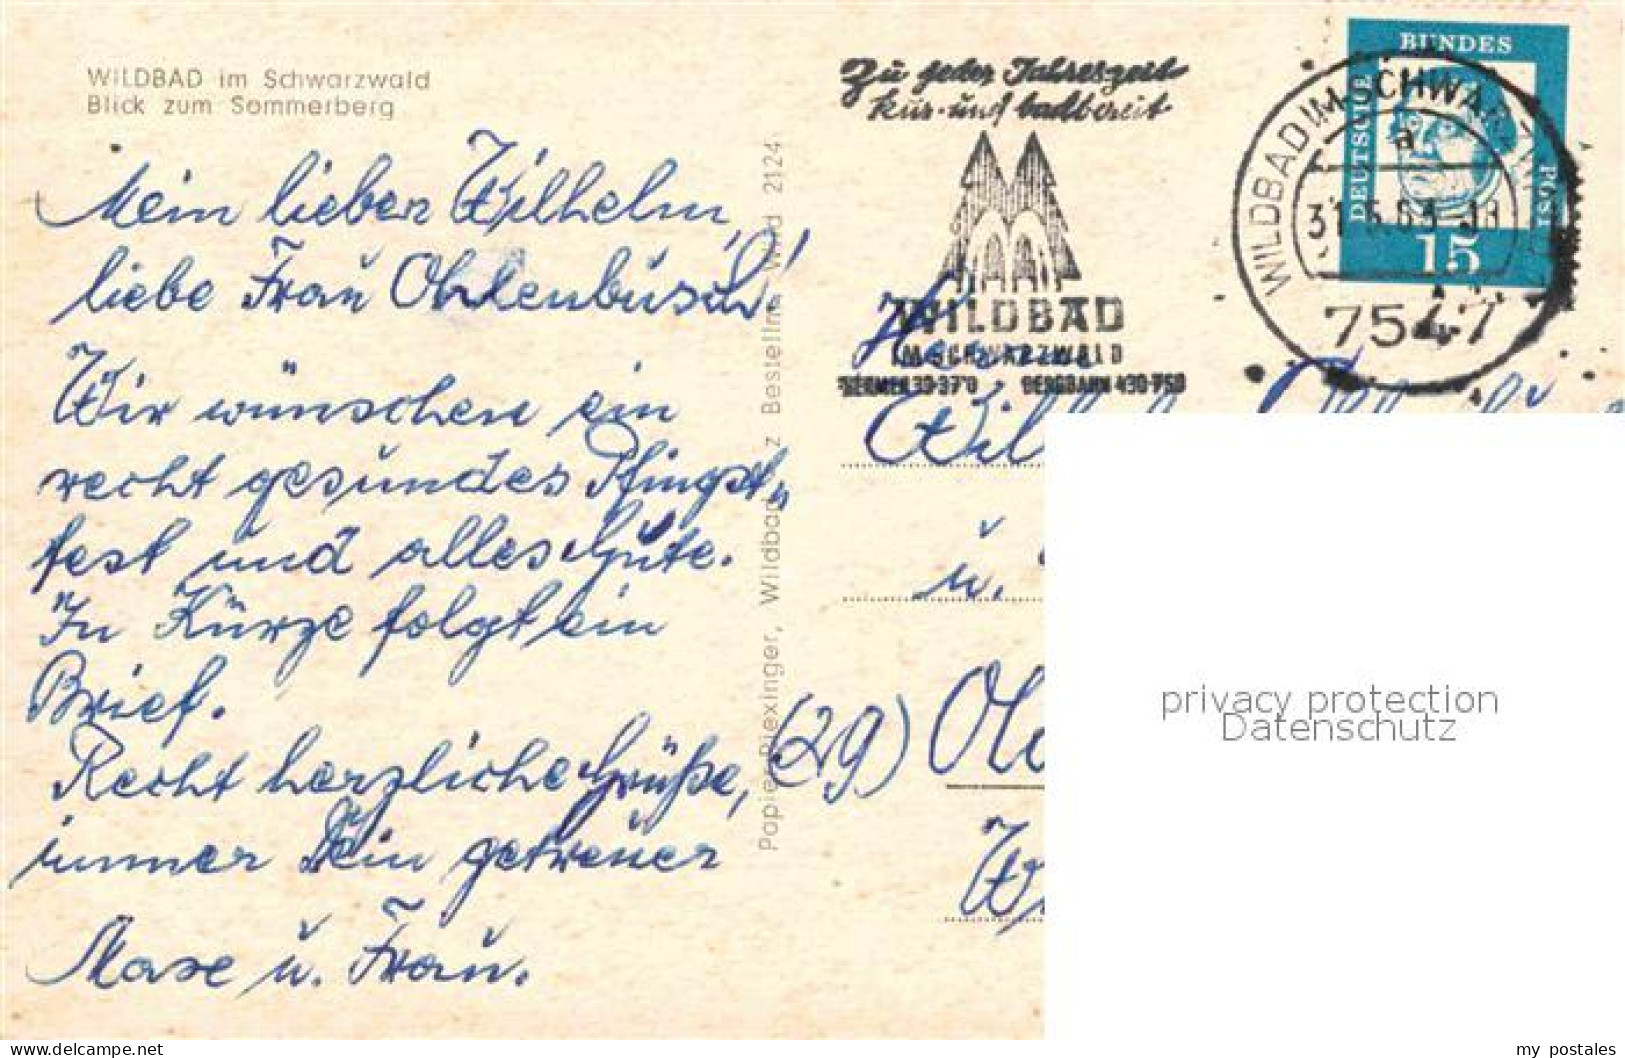 WILDBAD im Schwarzwald
Blick zum Sommerberg
Mein lieber Wilhelm,
liebe Frau Ohlenbusch!
Wir wünschen ein
recht gesundes Pfingst„
fest und alles Gute.
In Kürze folgt ein
Brief.
Recht herzliche Grüße,
immer Dein getreuer
u. Frau.
Papier-Plexinger, Wildbad Bestellnr. Wild 2124
Zu jeder Jahreszeit
kur- und badbereit
WILDBAD
IM SCHWARZWALD
THERMEN 33-37°C BERGBAHN 430-750
BUNDES
DEUTSCHE
POST
15
WILDBAD IM SCHWARZWALD
a
31.5.63
7547
Herrn
u.
(29)
privacy protection
Datenschutz
my postales
www.delcampe.net